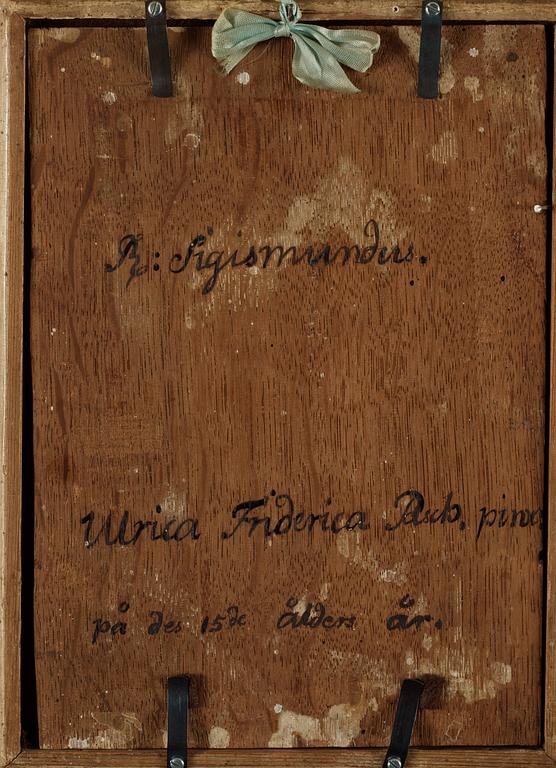 Rx: Sigismundus.
Ulrica Friderica Pasch. pinx
på des 15de ålders år.